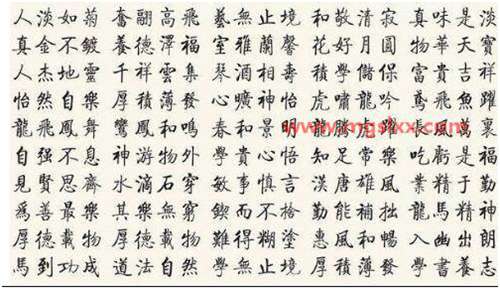 人淡如菊奮翮高飛藝無止境和敬清寂真味是淡
真金不鍍養德澤福室雅蘭馨花好月圓物華天寶
人杰地靈千祥雲集琴酒相壽積學儲保富貴吉祥
怡然自樂厚積薄發心曠神怡虎嘯龍吟鳶飛魚躍
龍飛鳳舞鸞鳳和鳴春和景明萬裏
www.mgslxx.com
自强不息神游物外學貴心悟知足常樂吃虧是福
見賢思齊水滴石穿敏事慎言漢唐雄風業精于勤
爲善最樂其樂無窮鍥而不捨勤能補拙龍馬精神
厚德載物難得糊塗惠風和暢入幽出朗
馬到功成道法自然學無止境厚積薄發學書養志